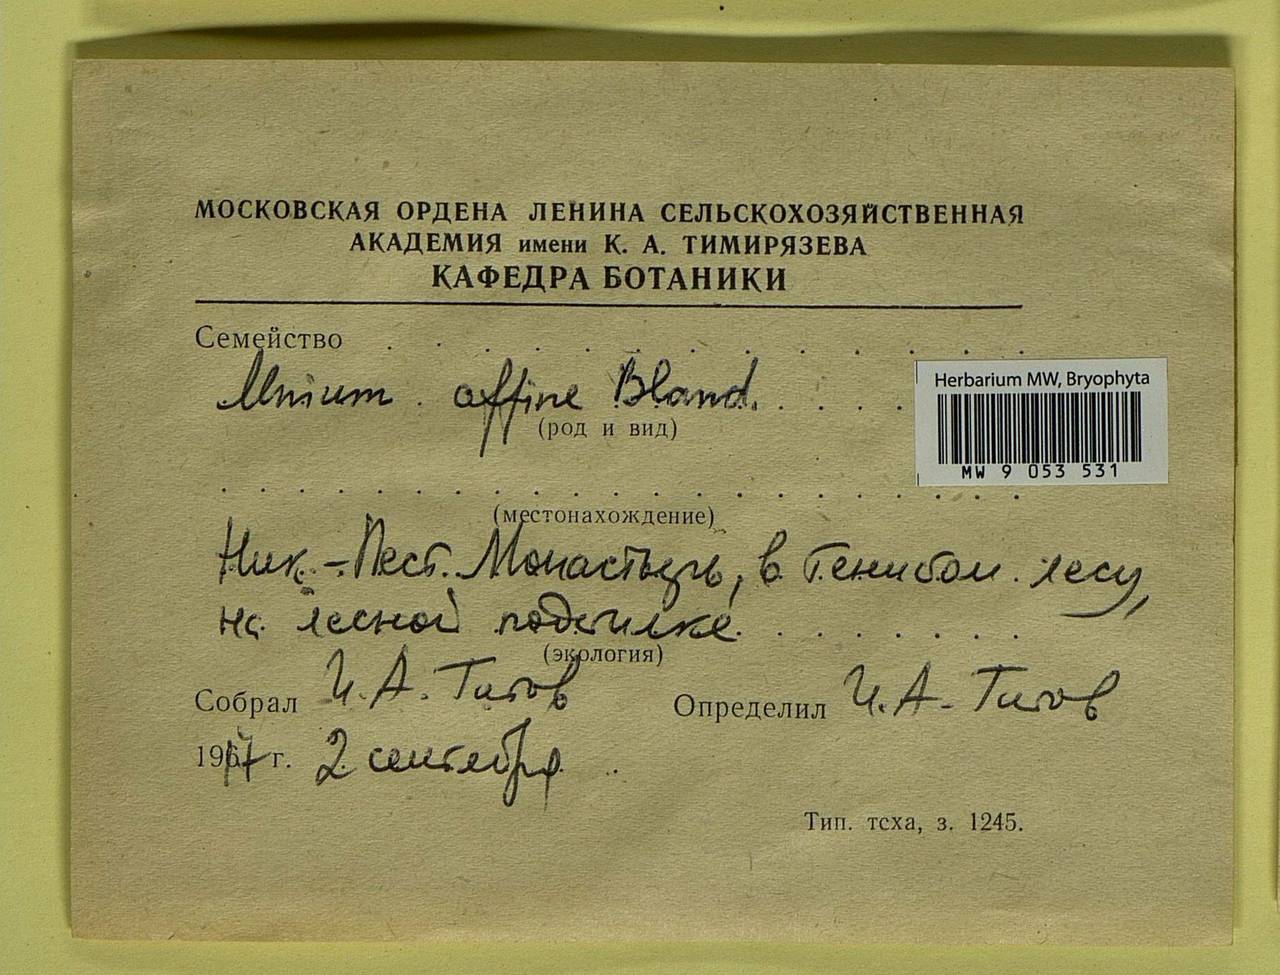 МОСКОВСКАЯ ОРДЕНА ЛЕНИНА СЕЛЬСКОХОЗЯЙСТВЕННАЯ
АКАДЕМИЯ имени К. А. ТИМИРЯЗЕВА
КАФЕДРА БОТАНИКИ
Семейство
Mnium affine Bland.
(род и вид)
Herbarium MW, Bryophyta
MW 9 053 531
(местонахождение)
Ник.-Пест. Монастырь, в тенистом лесу,
на лесной подстилке
(экология)
Собрал И. А. Титов Определил И. А. Титов
1917 г. 2 сентября
Тип. тсха, з. 1245.